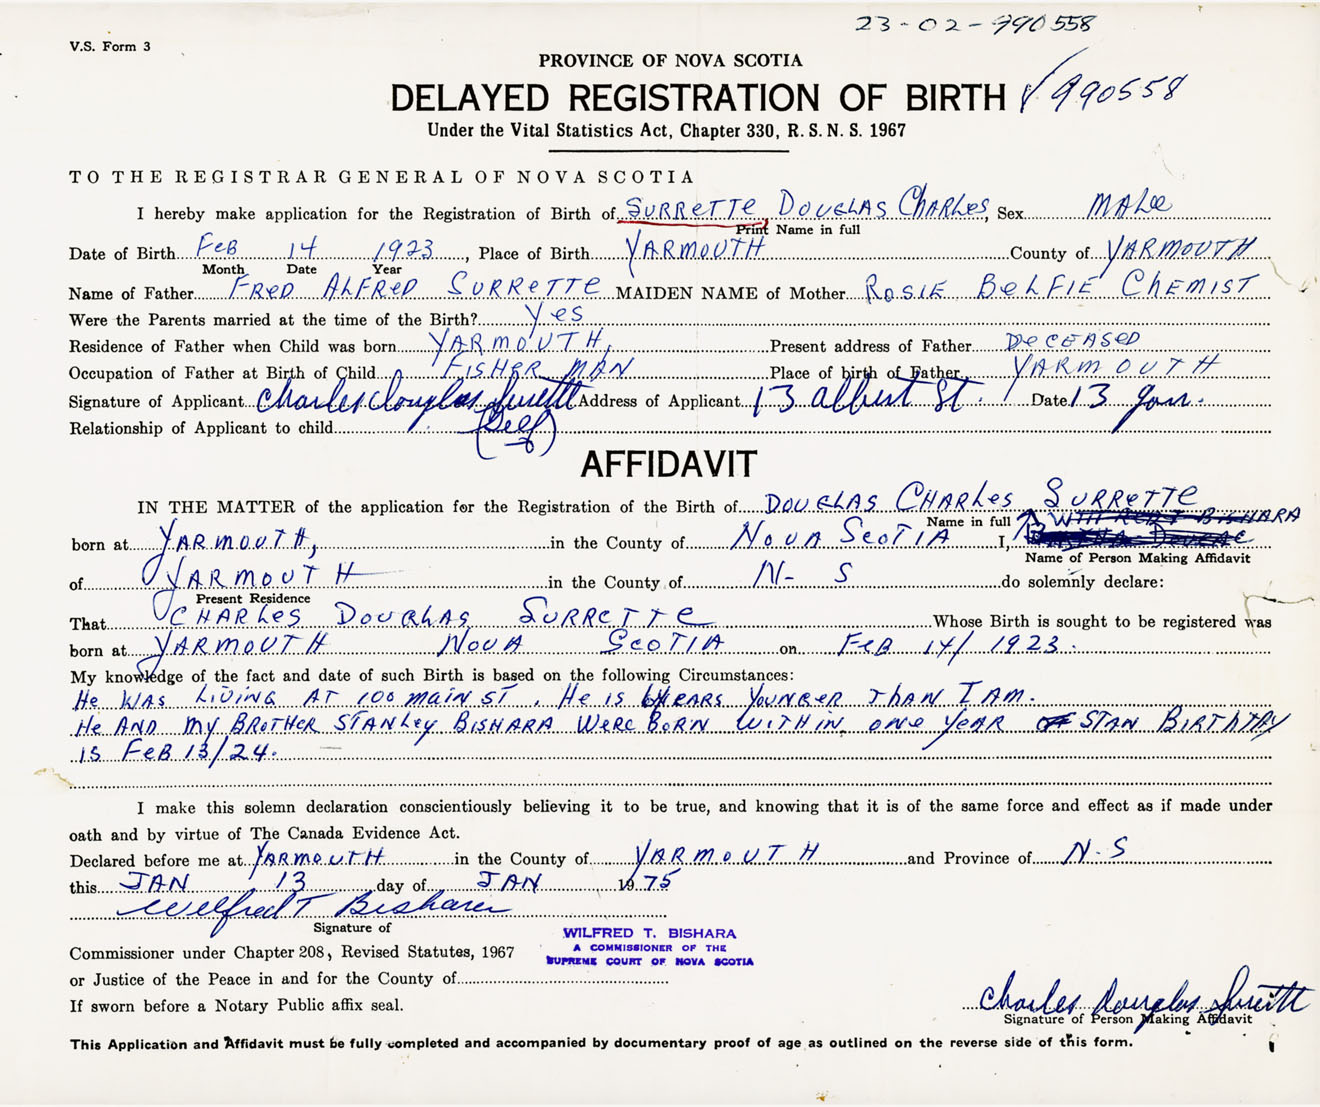 23-02-990558
V.S. Form 3
PROVINCE OF NOVA SCOTIA
DELAYED REGISTRATION OF BIRTH √990558
Under the Vital Statistics Act, Chapter 330, R.S.N.S. 1967
TO THE REGISTRAR GENERAL OF NOVA SCOTIA
I hereby make application for the Registration of Birth of SURRETTE, DOUGLAS CHARLES, Sex MALE
Print Name in full
Date of Birth FEB 14 1923, Place of Birth YARMOUTH County of YARMOUTH
Month Date Year
Name of Father FRED ALFRED SURRETTE MAIDEN NAME of Mother ROSIE BELFIE CHEMIST
Were the Parents married at the time of the Birth? Yes
Residence of Father when Child was born YARMOUTH, Present address of Father DECEASED
Occupation of Father at Birth of Child FISHER MAN Place of birth of Father YARMOUTH
Signature of Applicant Charles Douglas Surette Address of Applicant 13 Albert St. Date 13 Jan.
Relationship of Applicant to child (Self)
AFFIDAVIT
IN THE MATTER of the application for the Registration of the Birth of DOUGLAS CHARLES SURRETTE
Name in full WILFRED T BISHARA
born at YARMOUTH, in the County of NOVA SCOTIA I,
Name of Person Making Affidavit
of YARMOUTH in the County of N- S do solemnly declare:
Present Residence
That CHARLES DOUGLAS SURRETTE Whose Birth is sought to be registered was
born at YARMOUTH NOVA SCOTIA on FEB 14/ 1923.
My knowledge of the fact and date of such Birth is based on the following Circumstances:
HE WAS LIVING AT 100 MAIN ST. HE IS YEARS YOUNGER THAN I AM.
HE AND MY BROTHER STANLEY BISHARA WERE BORN WITHIN ONE YEAR STAN BIRTHDAY
IS FEB 13/24.
I make this solemn declaration conscientiously believing it to be true, and knowing that it is of the same force and effect as if made under
oath and by virtue of The Canada Evidence Act.
Declared before me at YARMOUTH in the County of YARMOUTH and Province of N.S
this JAN 13 day of JAN 1975
Wilfred T Bishara
Signature of
Commissioner under Chapter 208, Revised Statutes, 1967
WILFRED T. BISHARA
A COMMISSIONER OF THE
SUPREME COURT OF NOVA SCOTIA
or Justice of the Peace in and for the County of
If sworn before a Notary Public affix seal.
Charles Douglas Surette
Signature of Person Making Affidavit
This Application and Affidavit must be fully completed and accompanied by documentary proof of age as outlined on the reverse side of this form.